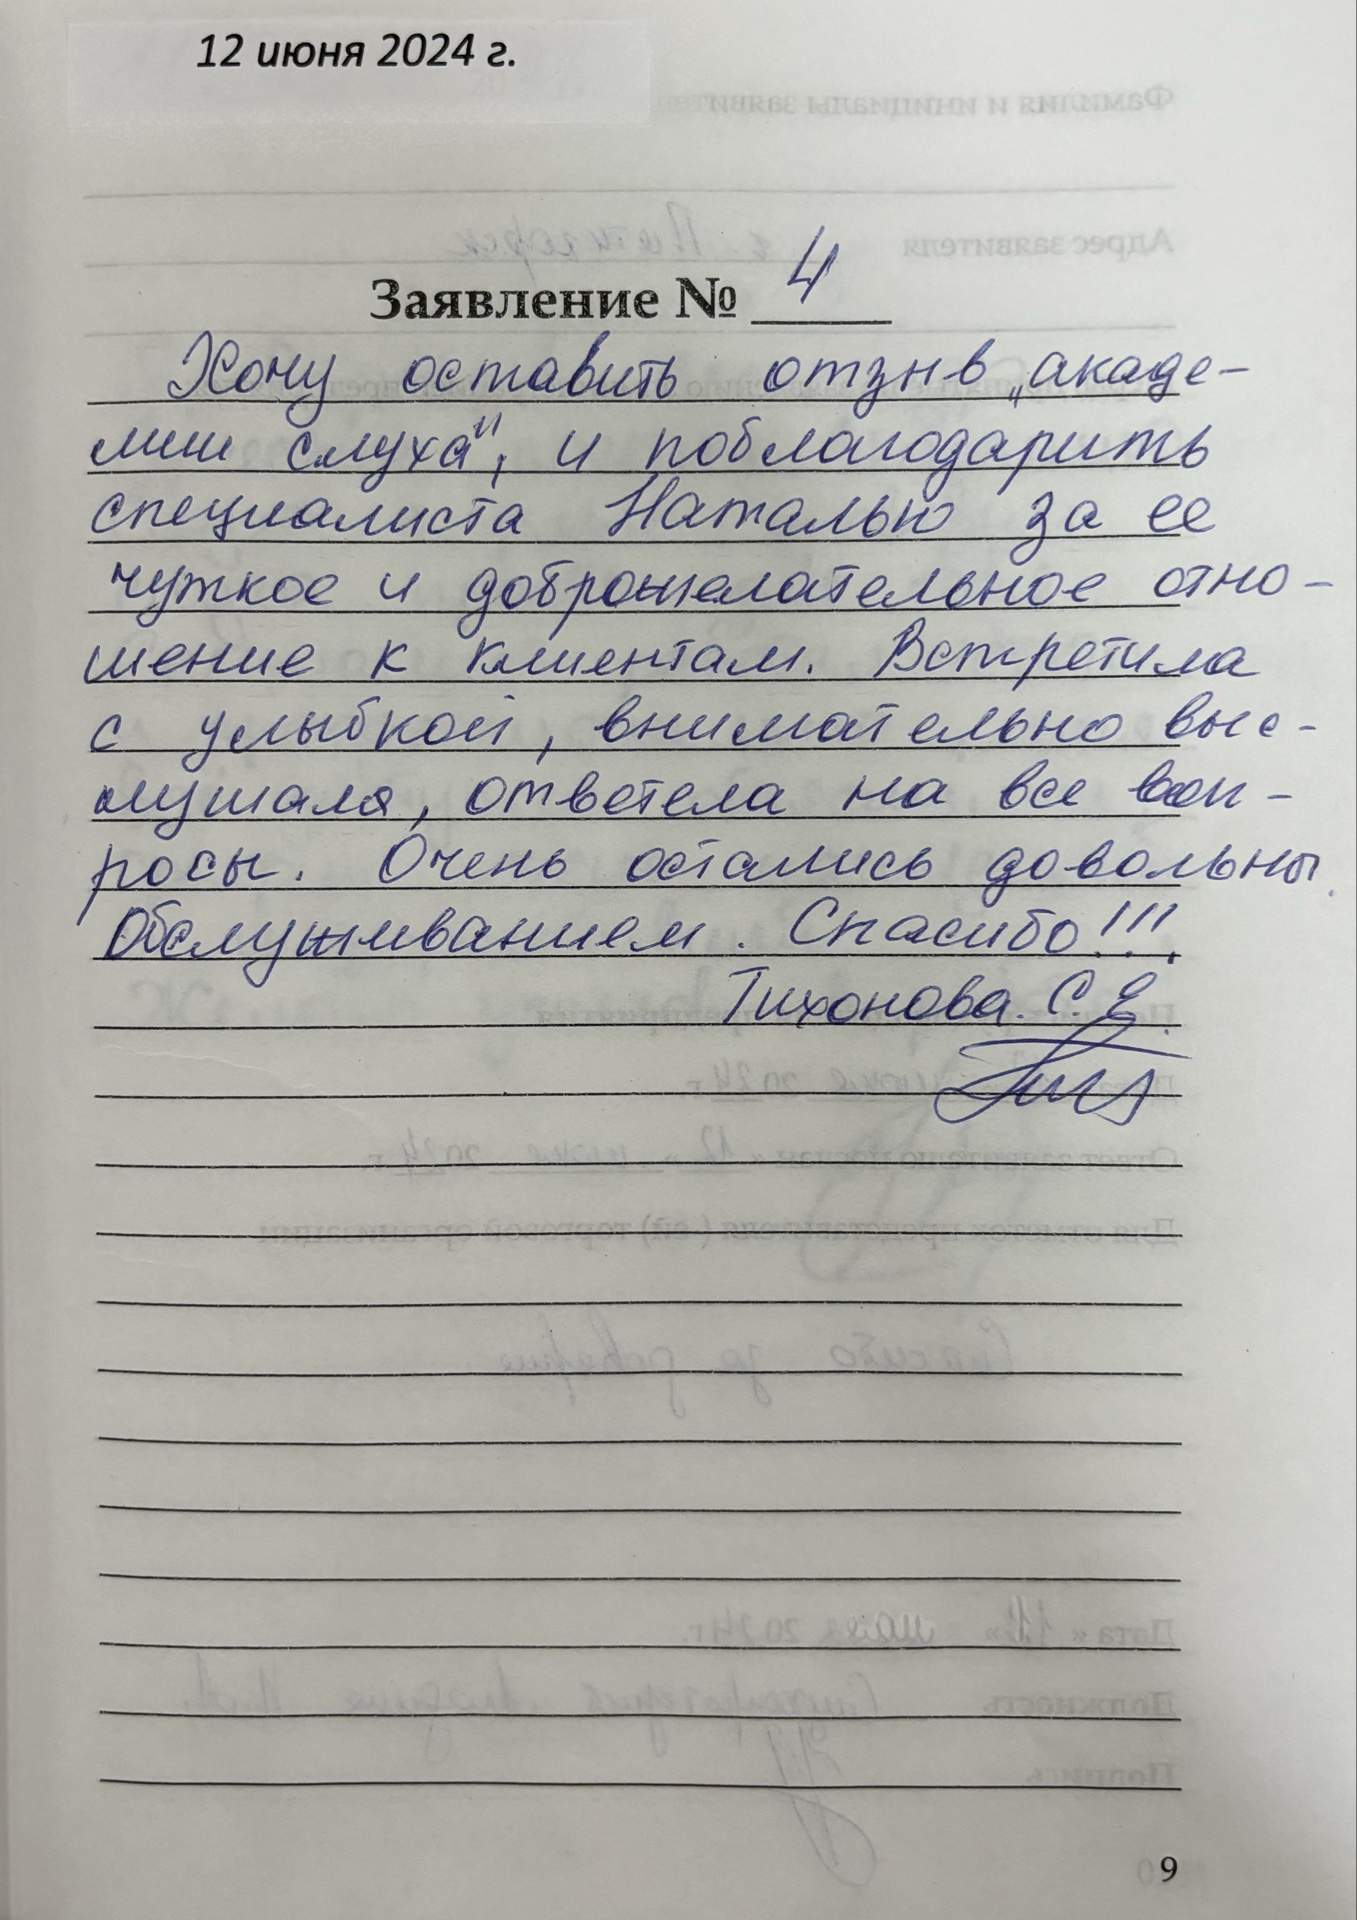 12 июня 2024 г.
Заявление № 4
Хочу оставить отзыв „акаде-
мии слуха", и поблагодарить
специалиста Наталью за ее
чуткое и доброжелательное отно-
шение к клиентам. Встретила
с улыбкой, внимательно выс-
лушала, ответела на все воп-
росы. Очень остались довольны
Обслуживанием. Спасибо!!!
Тихонова. С. Е.
9